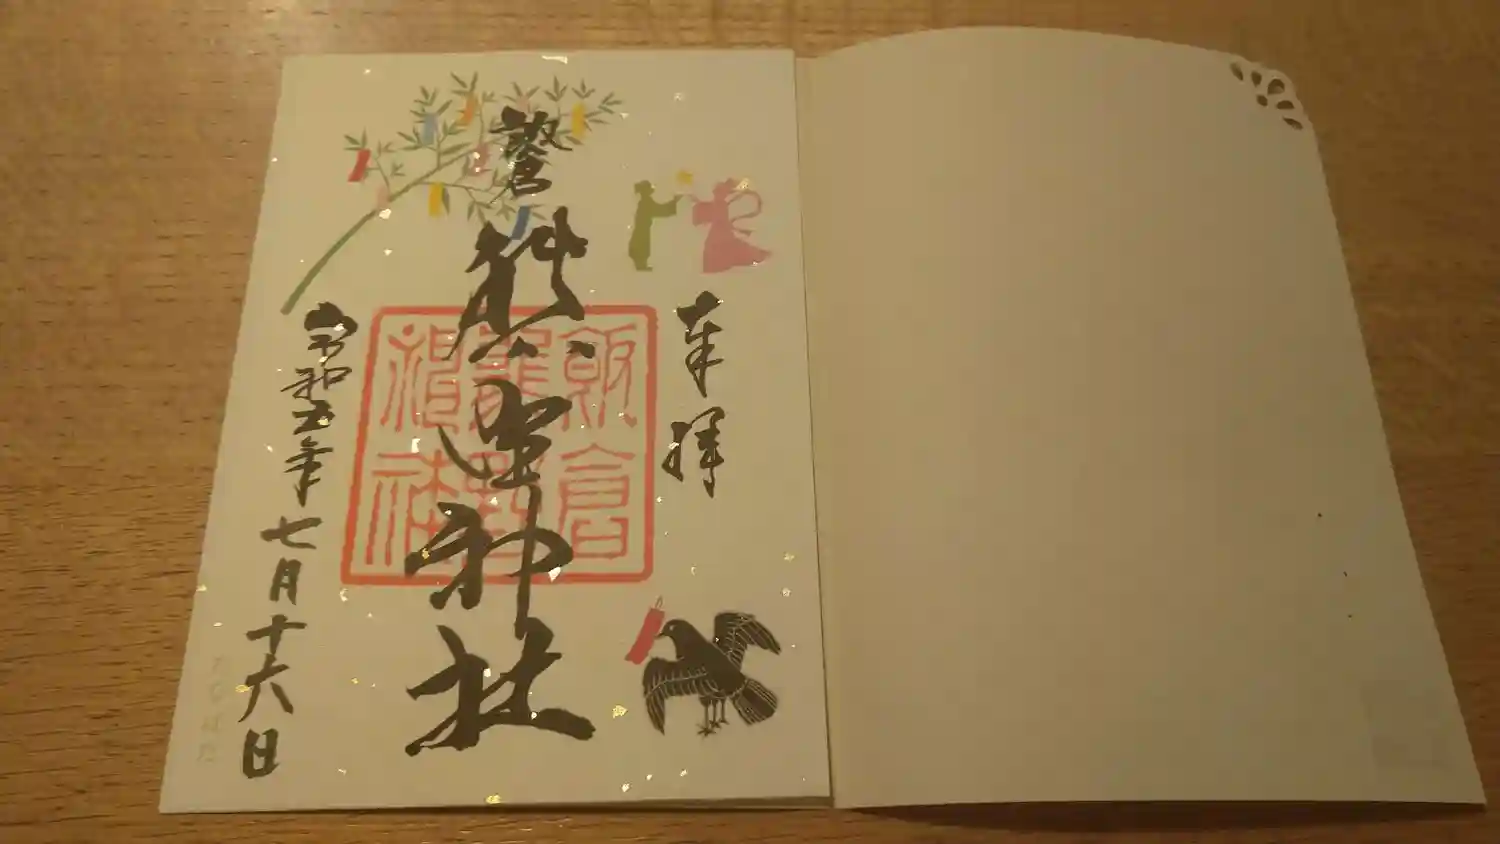 奉拝
飯倉
熊野神社
飯倉
熊野
神社
令和五年七月十六日